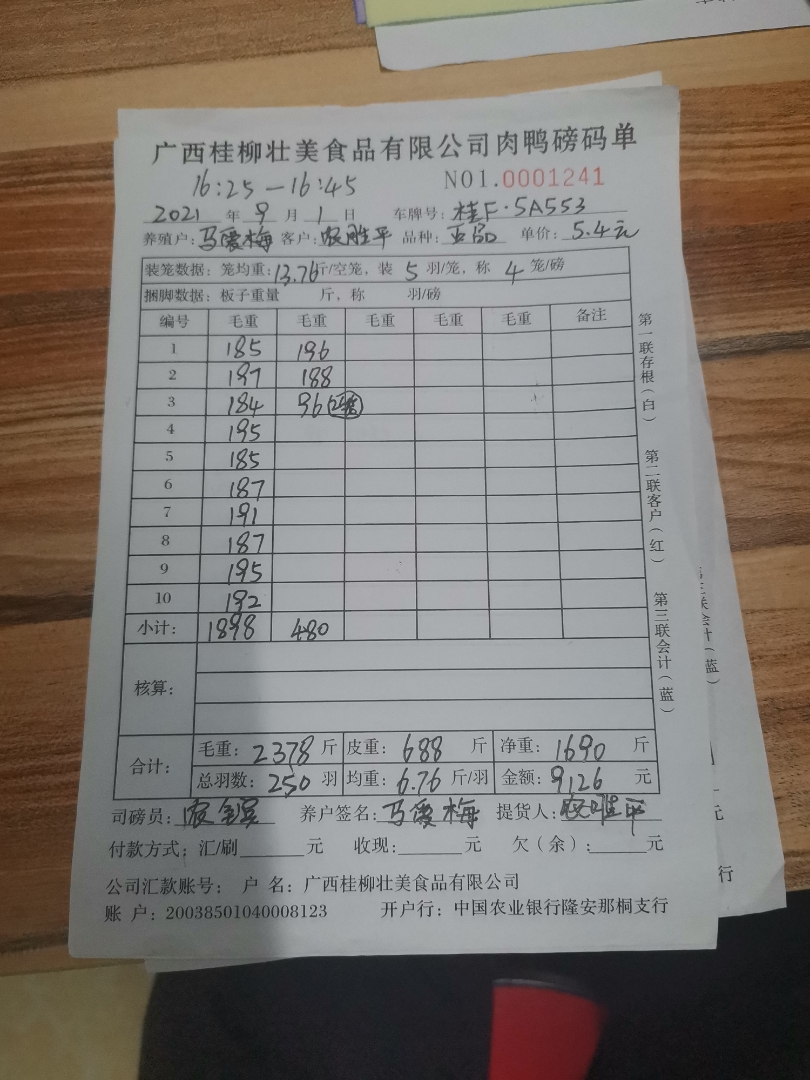 广西桂柳壮美食品有限公司肉鸭磅码单
16:25—16:45 NO1.0001241
2021 年 9 月 1 日 车牌号: 桂F·5A553
养殖户: 马爱梅 客户: 农胜平 品种: 单价: 5.4元
装笼数据: 笼均重: 13.76 斤/空笼, 装 5 羽/笼, 称 4 笼/磅
捆脚数据: 板子重量 斤, 称 羽/磅
编号 毛重 毛重 毛重 毛重 毛重 备注
1 185 196
2 197 188
3 184 96
4 195
5 185
6 187
7 191
8 187
9 195
10 192
小计: 1898 480
核算:
合计: 毛重: 2378 斤 皮重: 688 斤 净重: 1690 斤
总羽数: 250 羽 均重: 6.76 斤/羽 金额: 9126 元
司磅员: 养户签名: 马爱梅 提货人:
付款方式: 汇/刷 元 收现: 元 欠(余): 元
公司汇款账号: 户 名: 广西桂柳壮美食品有限公司
账 户: 20038501040008123 开户行: 中国农业银行隆安那桐支行
第一联存根(白) 第二联客户(红) 第三联会计(蓝)
联会计(蓝)
元
行